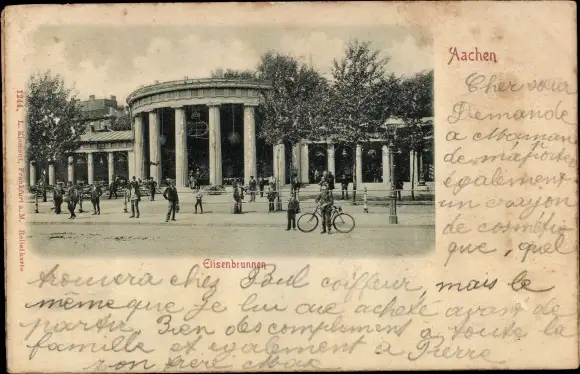 Aachen
Cher sœur
Demande
a Maman
de m'apporter
également
un crayon
de cosmétique
que, quel
trouvera chez Bul coiffeur, mais le
même que je lui ai acheté avant de
partir. Bien des compliments a toute la
famille et également a Pierre
ton frère Max
Elisenbrunnen
1244. L. Klement, Frankfurt a. M. Reliefkarte